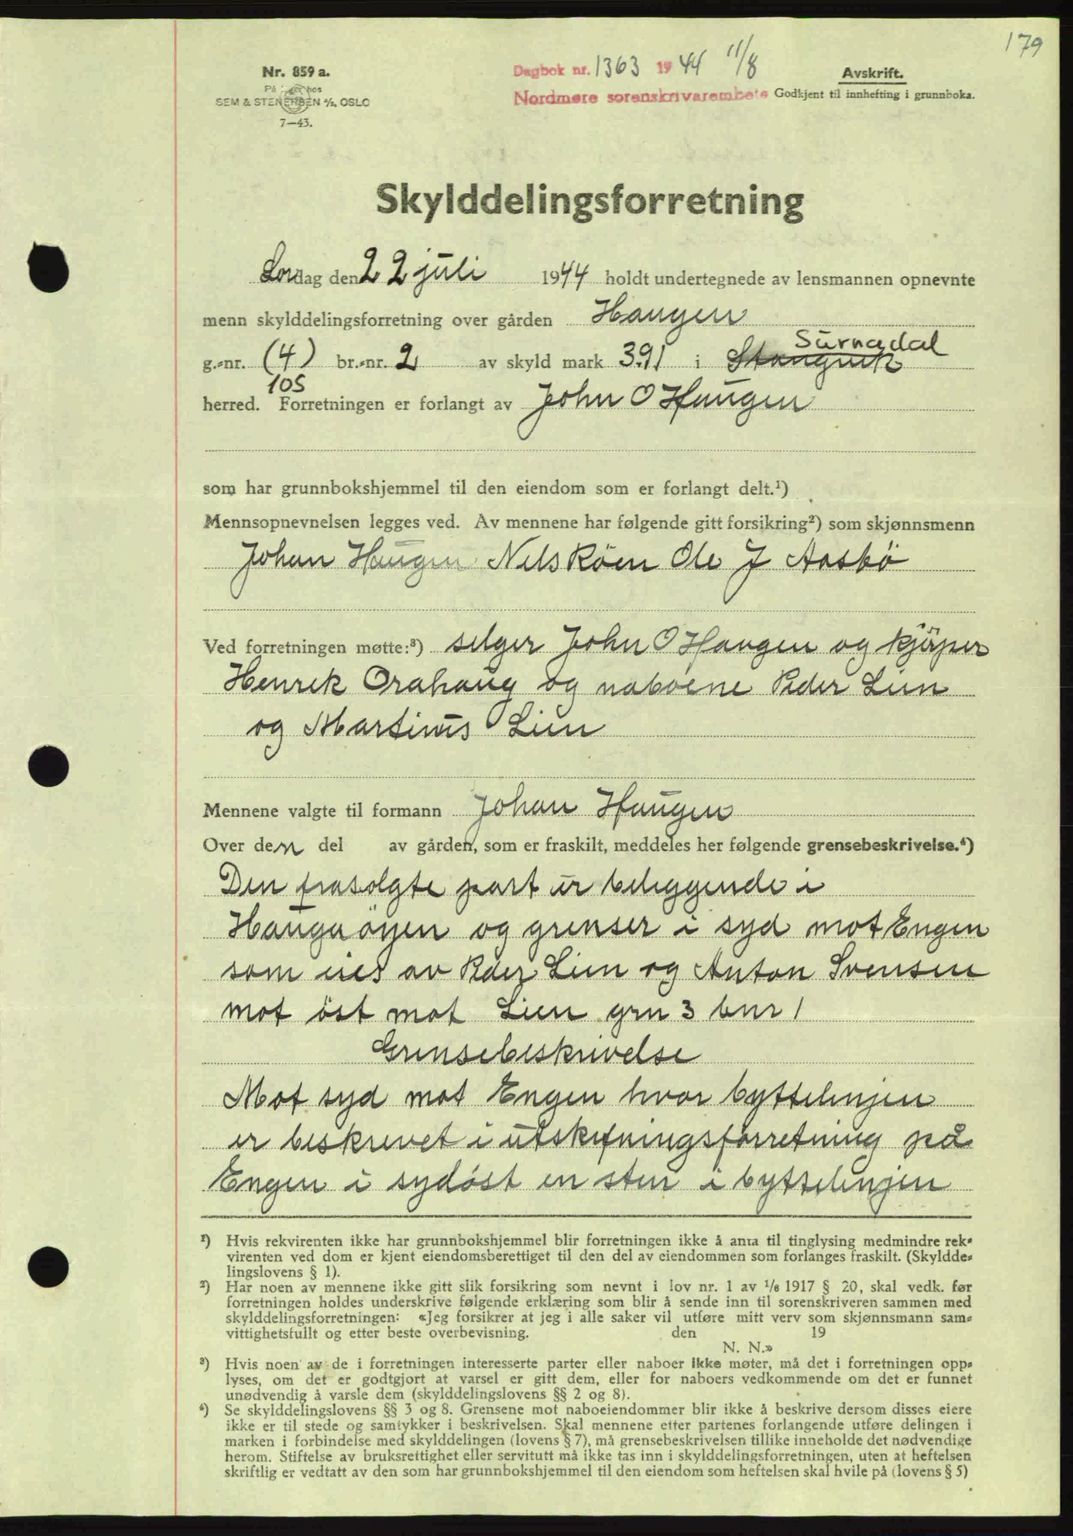 179
Nr. 859 a.
SEM & STENERSEN A/S, OSLO
7—43.
Dagbok nr. 1363 1944 11/8
Nordmøre sorenskrivarembete
Avskrift.
Godkjent til innhefting i grunnboka.
Skylddelingsforretning
Lørdag den 22 juli 1944 holdt undertegnede av lensmannen opnevnte
menn skylddelingsforretning over gården Haugen
Surnadal
g.-nr. (4) br.-nr. 2 av skyld mark 3.91 i Stangvik
105
herred. Forretningen er forlangt av John O Haugen
som har grunnbokshjemmel til den eiendom som er forlangt delt.¹)
Mennsopnevnelsen legges ved. Av mennene har følgende gitt forsikring²) som skjønnsmenn
Johan Haugen Nils Röen Ole J Aasbö
Ved forretningen møtte:³) selger John O Haugen og kjöper
Henrik Orahaug og naboene Peder Lien
og Martinus Lien
Mennene valgte til formann Johan Haugen
Over den del av gården, som er fraskilt, meddeles her følgende grensebeskrivelse.⁴)
Den frasolgte part er beliggende i
Haugaöyen og grenser i syd mot Engen
som eies av Peder Lien og Anton Svensen
mot öst mot Lien grn 3 bnr 1
Grensebeskrivelse
Mot syd mot Engen hvor byttelinjen
er beskrevet i utskiftningsforretning på
Engen i sydöst en sten i byttelinjen
¹) Hvis rekvirenten ikke har grunnbokshjemmel blir forretningen ikke å anta til tinglysing medmindre rek-
virenten ved dom er kjent eiendomsberettiget til den del av eiendommen som forlanges fraskilt. (Skyldde-
lingslovens § 1).
²) Har noen av mennene ikke gitt slik forsikring som nevnt i lov nr. 1 av 1/6 1917 § 20, skal vedk. før
forretningen holdes underskrive følgende erklæring som blir å sende inn til sorenskriveren sammen med
skylddelingsforretningen: «Jeg forsikrer at jeg i alle saker vil utføre mitt verv som skjønnsmann sam-
vittighetsfullt og etter beste overbevisning. den 19
N. N.»
³) Hvis noen av de i forretningen interesserte parter eller naboer ikke møter, må det i forretningen opp-
lyses, om det er godtgjort at varsel er gitt dem, eller for naboers vedkommende om det er funnet
unødvendig å varsle dem (skylddelingslovens §§ 2 og 8).
⁴) Se skylddelingslovens §§ 3 og 8. Grensene mot naboeiendommer blir ikke å beskrive dersom disses eiere
ikke er til stede og samtykker i beskrivelsen. Skal mennene etter partenes forlangende utføre delingen i
marken i forbindelse med skylddelingen (lovens § 7), må grensebeskrivelsen tillike inneholde det nødvendige
herom. Stiftelse av bruksrettighet eller servitutt må ikke tas inn i skylddelingsforretningen, uten at heftelsen
skriftlig er vedtatt av den som har grunnbokshjemmel til den eiendom som heftelsen skal hvile på (lovens § 5)